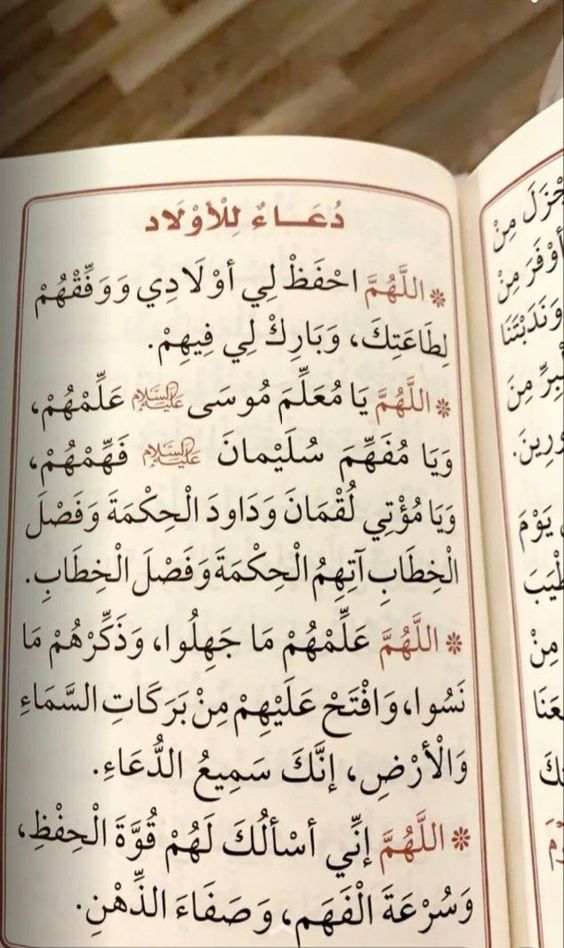 دُعَاءٌ لِلْأَوْلَادِ
* اللَّهُمَّ احْفَظْ لِي أَوْلَادِي وَوَفِّقْهُمْ
لِطَاعَتِكَ، وَبَارِكْ لِي فِيهِمْ.
* اللَّهُمَّ يَا مُعَلِّمَ مُوسَى عليه السلام عَلِّمْهُمْ،
وَيَا مُفَهِّمَ سُلَيْمانَ عليه السلام فَهِّمْهُمْ،
وَيَا مُؤْتِي لُقْمَانَ وَدَاودَ الْحِكْمَةَ وَفَصْلَ
الْخِطَابِ آتِهِمُ الْحِكْمَةَ وَفَصْلَ الْخِطَابِ.
* اللَّهُمَّ عَلِّمْهُمْ مَا جَهِلُوا، وَذَكِّرْهُمْ مَا
نَسُوا، وَافْتَحْ عَلَيْهِمْ مِنْ بَرَكَاتِ السَّمَاءِ
وَالْأَرْضِ، إِنَّكَ سَمِيعُ الدُّعَاءِ.
* اللَّهُمَّ إِنِّي أَسْأَلُكَ لَهُمْ قُوَّةَ الْحِفْظِ،
وَسُرْعَةَ الْفَهَمِ، وَصَفَاءَ الذِّهْنِ.